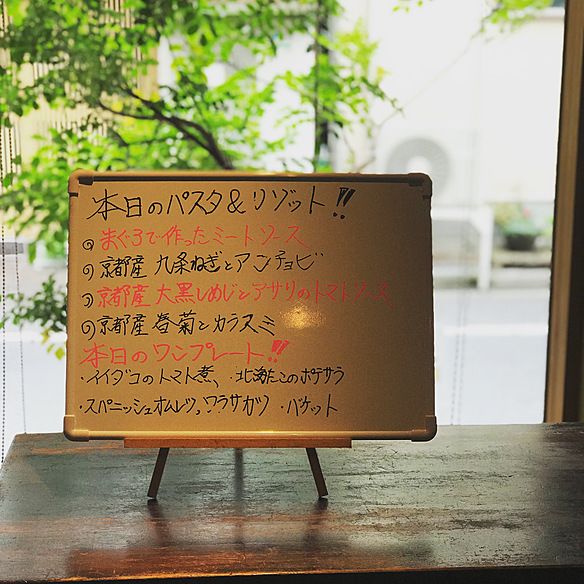 本日のパスタ&リゾット!!
◎まぐろで作ったミートソース
◎京都産 九条ねぎとアンチョビ
◎京都産 大黒しめじとアサリのトマトソース
◎京都産 春菊とカラスミ
本日のワンプレート!!
・イイダコのトマト煮、・北海たこのポテサラ
・スペニッシュオムレツ、ワラサガツ ・バケット